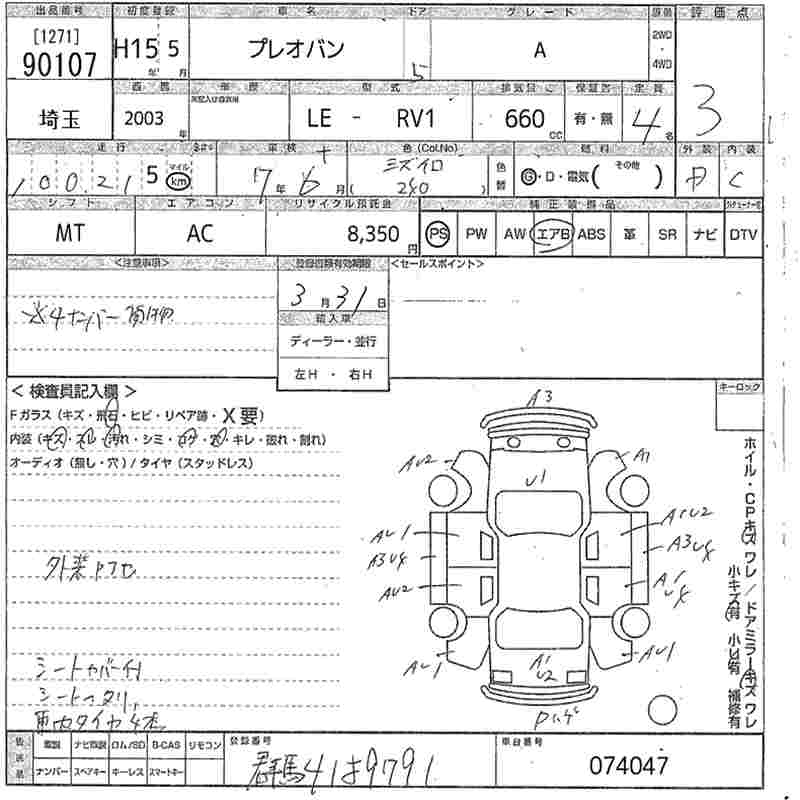 出品番号 初度登録 車名 ドア グレード 駆動 評価点
[1271] 90107 H15年 5月 プレオバン 5 A 2WD・4WD 3
埼玉 2003年 車歴 型式 LE - RV1 排気量 660cc 保証書 有・無 定員 4名
走行 車検 色(Col.No) 燃料 外装 内装
100,215 マイル km 7年 6月 ミズイロ 280 色替 G・D・電気( その他 ) D C
シフト エアコン リサイクル預託金 純正装備品
MT AC 8,350円 PS PW AW エアB ABS 革 SR ナビ DTV
<注意事項> 登録書類有効期限 <セールスポイント>
3月31日
※4ナンバー 貨物
輸入車
ディーラー・並行
左H ・ 右H
<検査員記入欄> キーロック
Fガラス(キズ・飛石・ヒビ・リペア跡・X要)
内装(キズ・スレ・汚れ・シミ・コゲ・穴・キレ・破れ・割れ)
オーディオ(無し・穴)/タイヤ(スタッドレス)
A3
AU2 U1 A1
AU1 A1U2
A3UX A3UX
AU2 A1 UX
AU1 A1 U2 AU1
Pハゲ
外装
シートカバー付
シートヘタリ
車内タイヤ4本
ホイル・CPキズ ワレ/ドアミラーキズ ワレ
小キズ有 小凹有 補修有
後送品 取説 ナビ取説 ロム/SD B-CAS リモコン 登録番号 車台番号
ナンバー スペアキー キーレス スマートキー 群馬41は9791 074047